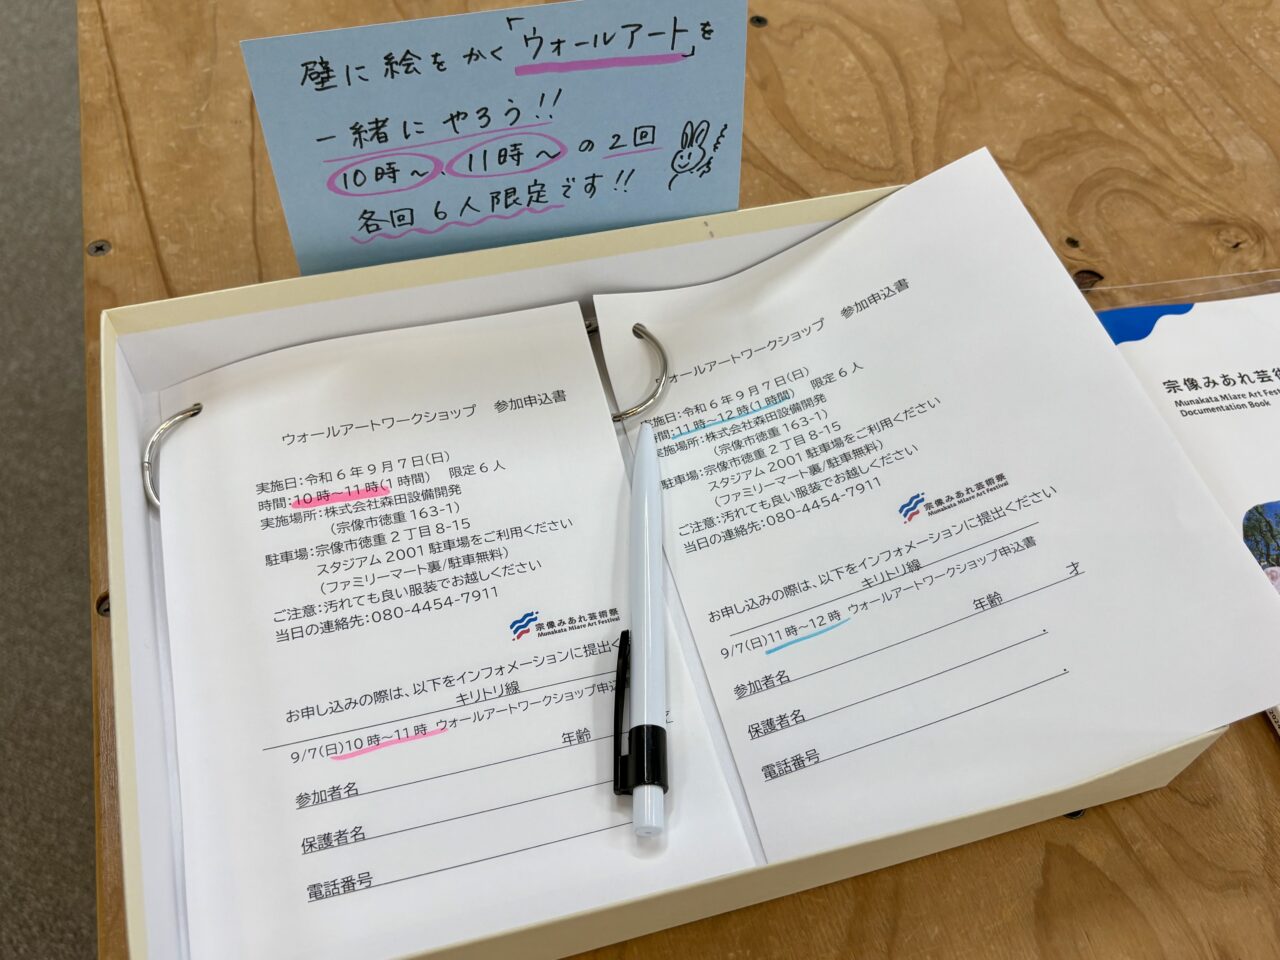 壁に絵をかく「ウォールアート」を
一緒にやろう!!
10時～、11時～の2回
各回6人限定です!!
ウォールアートワークショップ　参加申込書
実施日：令和6年9月7日(日)
時間：10時～11時(1時間)　限定6人
実施場所：株式会社森田設備開発
(宗像市徳重163-1)
駐車場：宗像市徳重2丁目8-15
スタジアム2001駐車場をご利用ください
(ファミリーマート裏/駐車無料)
ご注意：汚れても良い服装でお越しください
当日の連絡先：080-4454-7911
宗像みあれ芸術祭
Munakata Miare Art Festival
お申し込みの際は、以下をインフォメーションに提出く
キリトリ線
9/7(日)10時～11時　ウォールアートワークショップ申込
参加者名
年齢
保護者名
電話番号
ウォールアートワークショップ　参加申込書
実施日：令和6年9月7日(日)
時間：11時～12時(1時間)　限定6人
実施場所：株式会社森田設備開発
(宗像市徳重163-1)
駐車場：宗像市徳重2丁目8-15
スタジアム2001駐車場をご利用ください
(ファミリーマート裏/駐車無料)
ご注意：汚れても良い服装でお越しください
当日の連絡先：080-4454-7911
宗像みあれ芸術祭
Munakata Miare Art Festival
お申し込みの際は、以下をインフォメーションに提出ください
キリトリ線
9/7(日)11時～12時　ウォールアートワークショップ申込書
参加者名
年齢
才
保護者名
電話番号
宗像みあれ芸術
Munakata Miare Art Fes
Documentation Book